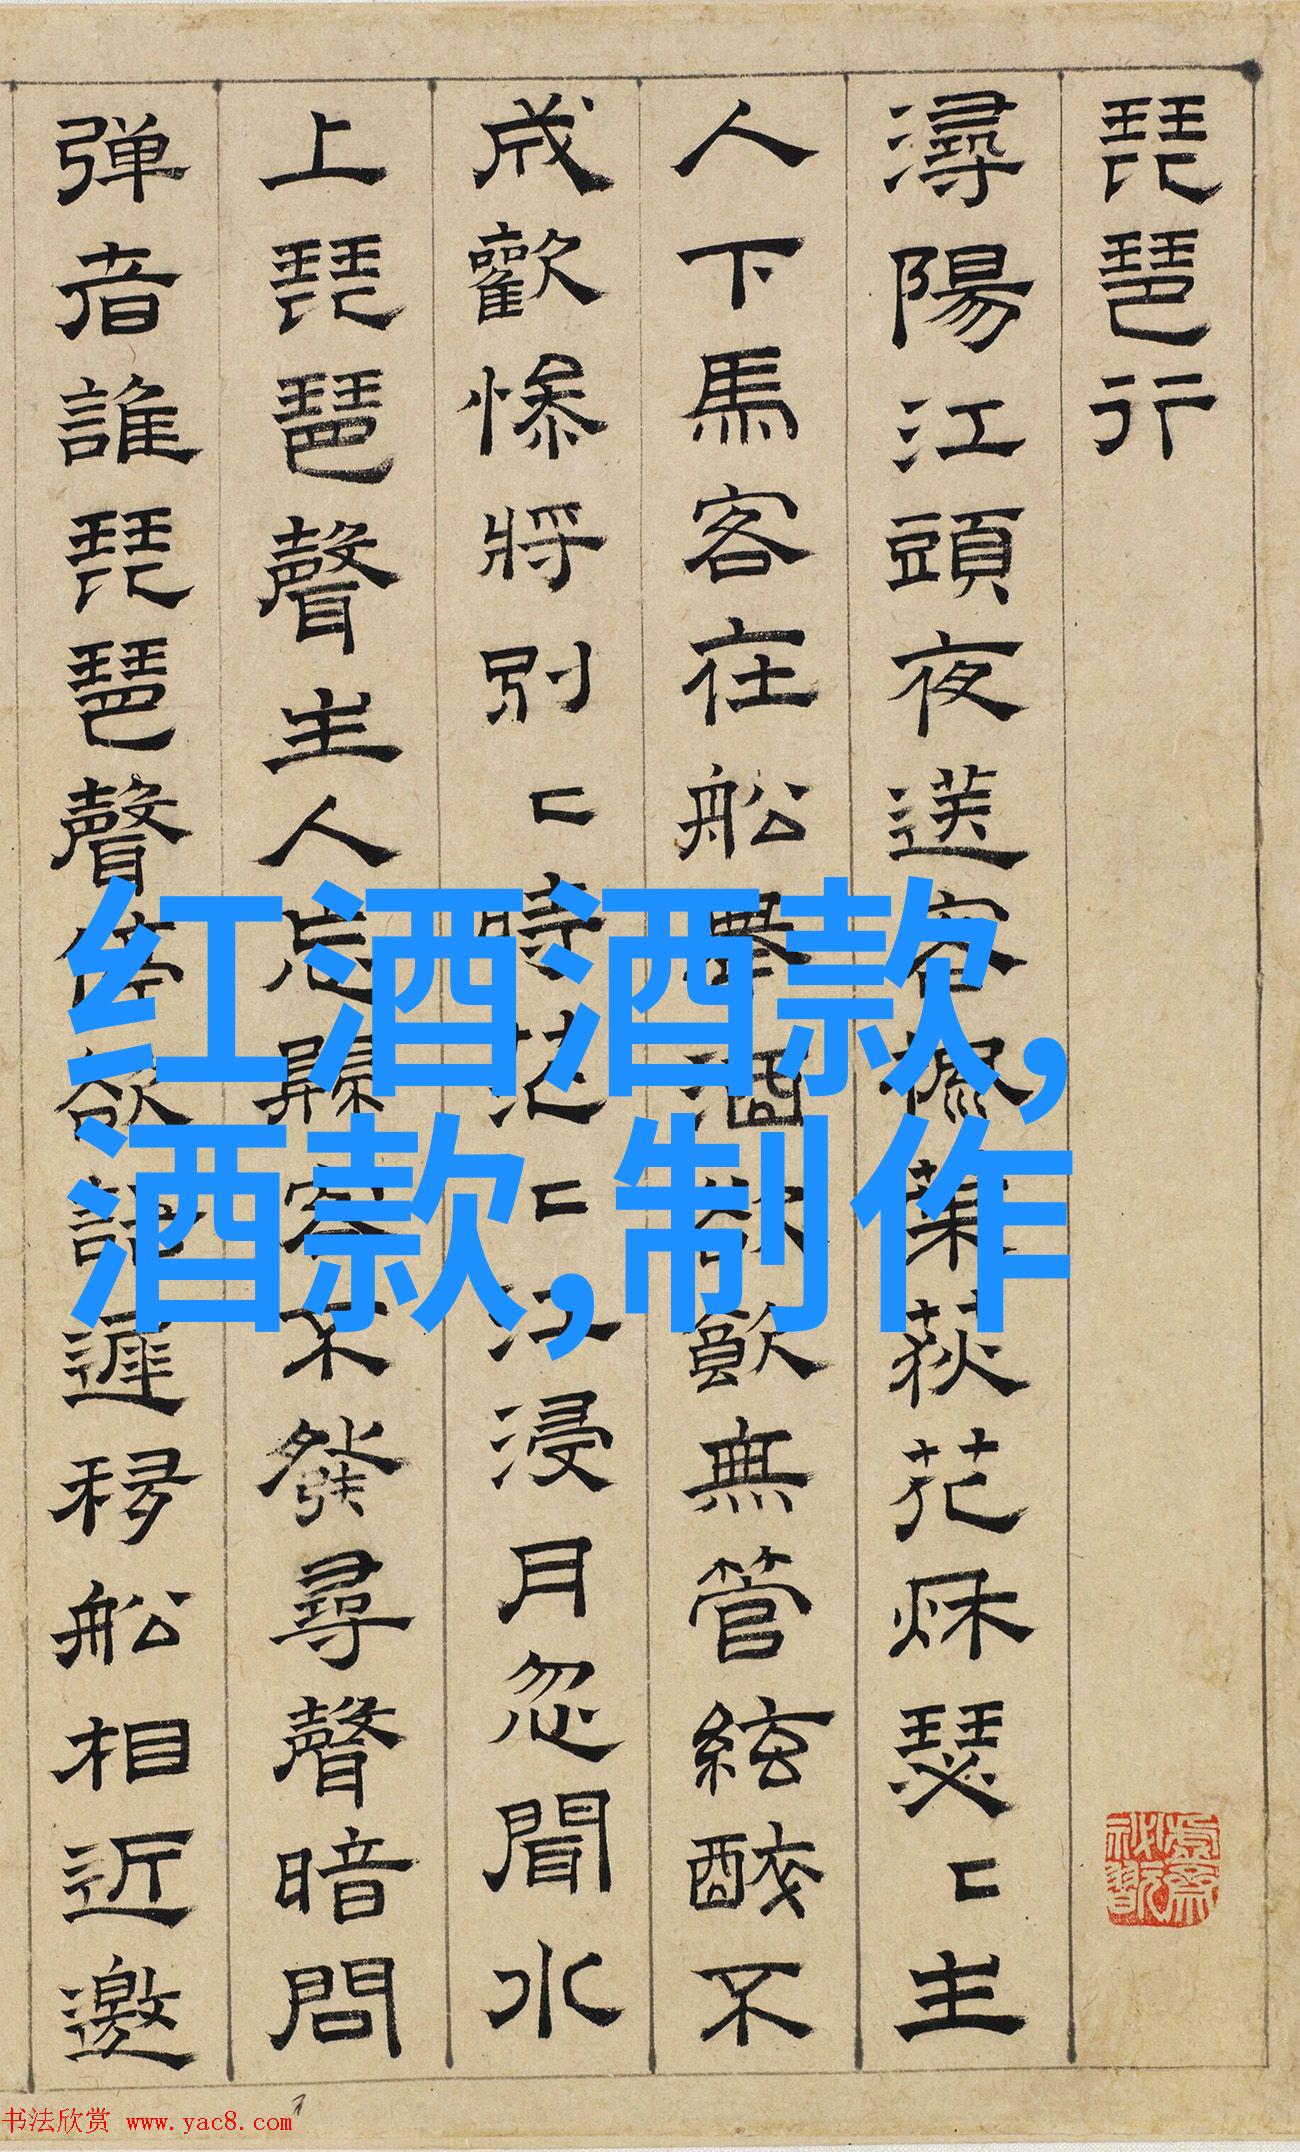 琵琶行
潯陽江頭夜送客楓葉荻花秌瑟〻主
人下馬客在船舉酒欲飲無管絃醉不
成歡慘將別〻時茫〻江浸月忽聞水
上琵琶聲主人忘歸客不發尋聲暗問
弹者誰琵琶聲停欲語遲移船相近邀
红酒酒款,
酒款,制作
书法欣赏 www.yac8.com